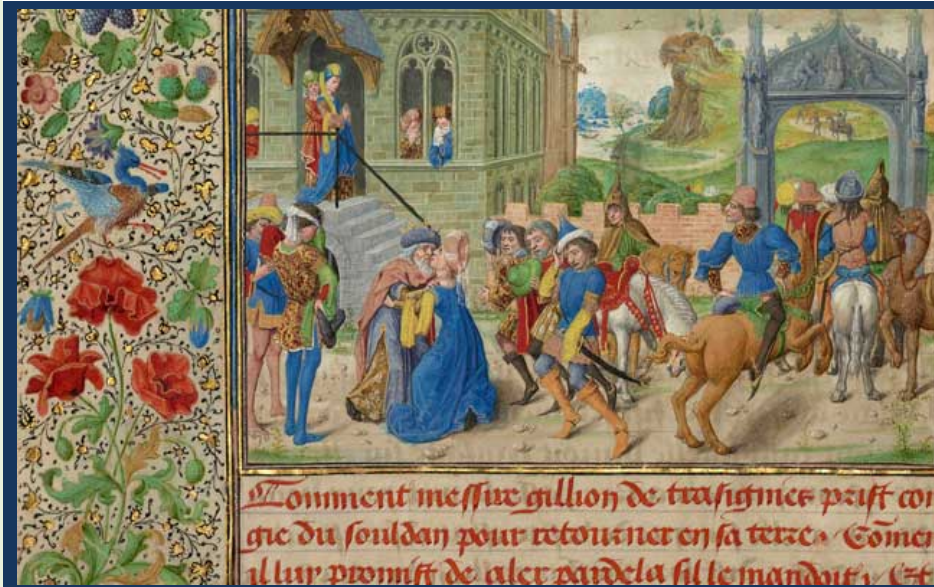 Comment messire gillion de trasignies prist con
gie du souldan pour retourner en sa terre. Cõmen
il luy promist de aler par de la sil le mandoit. Et